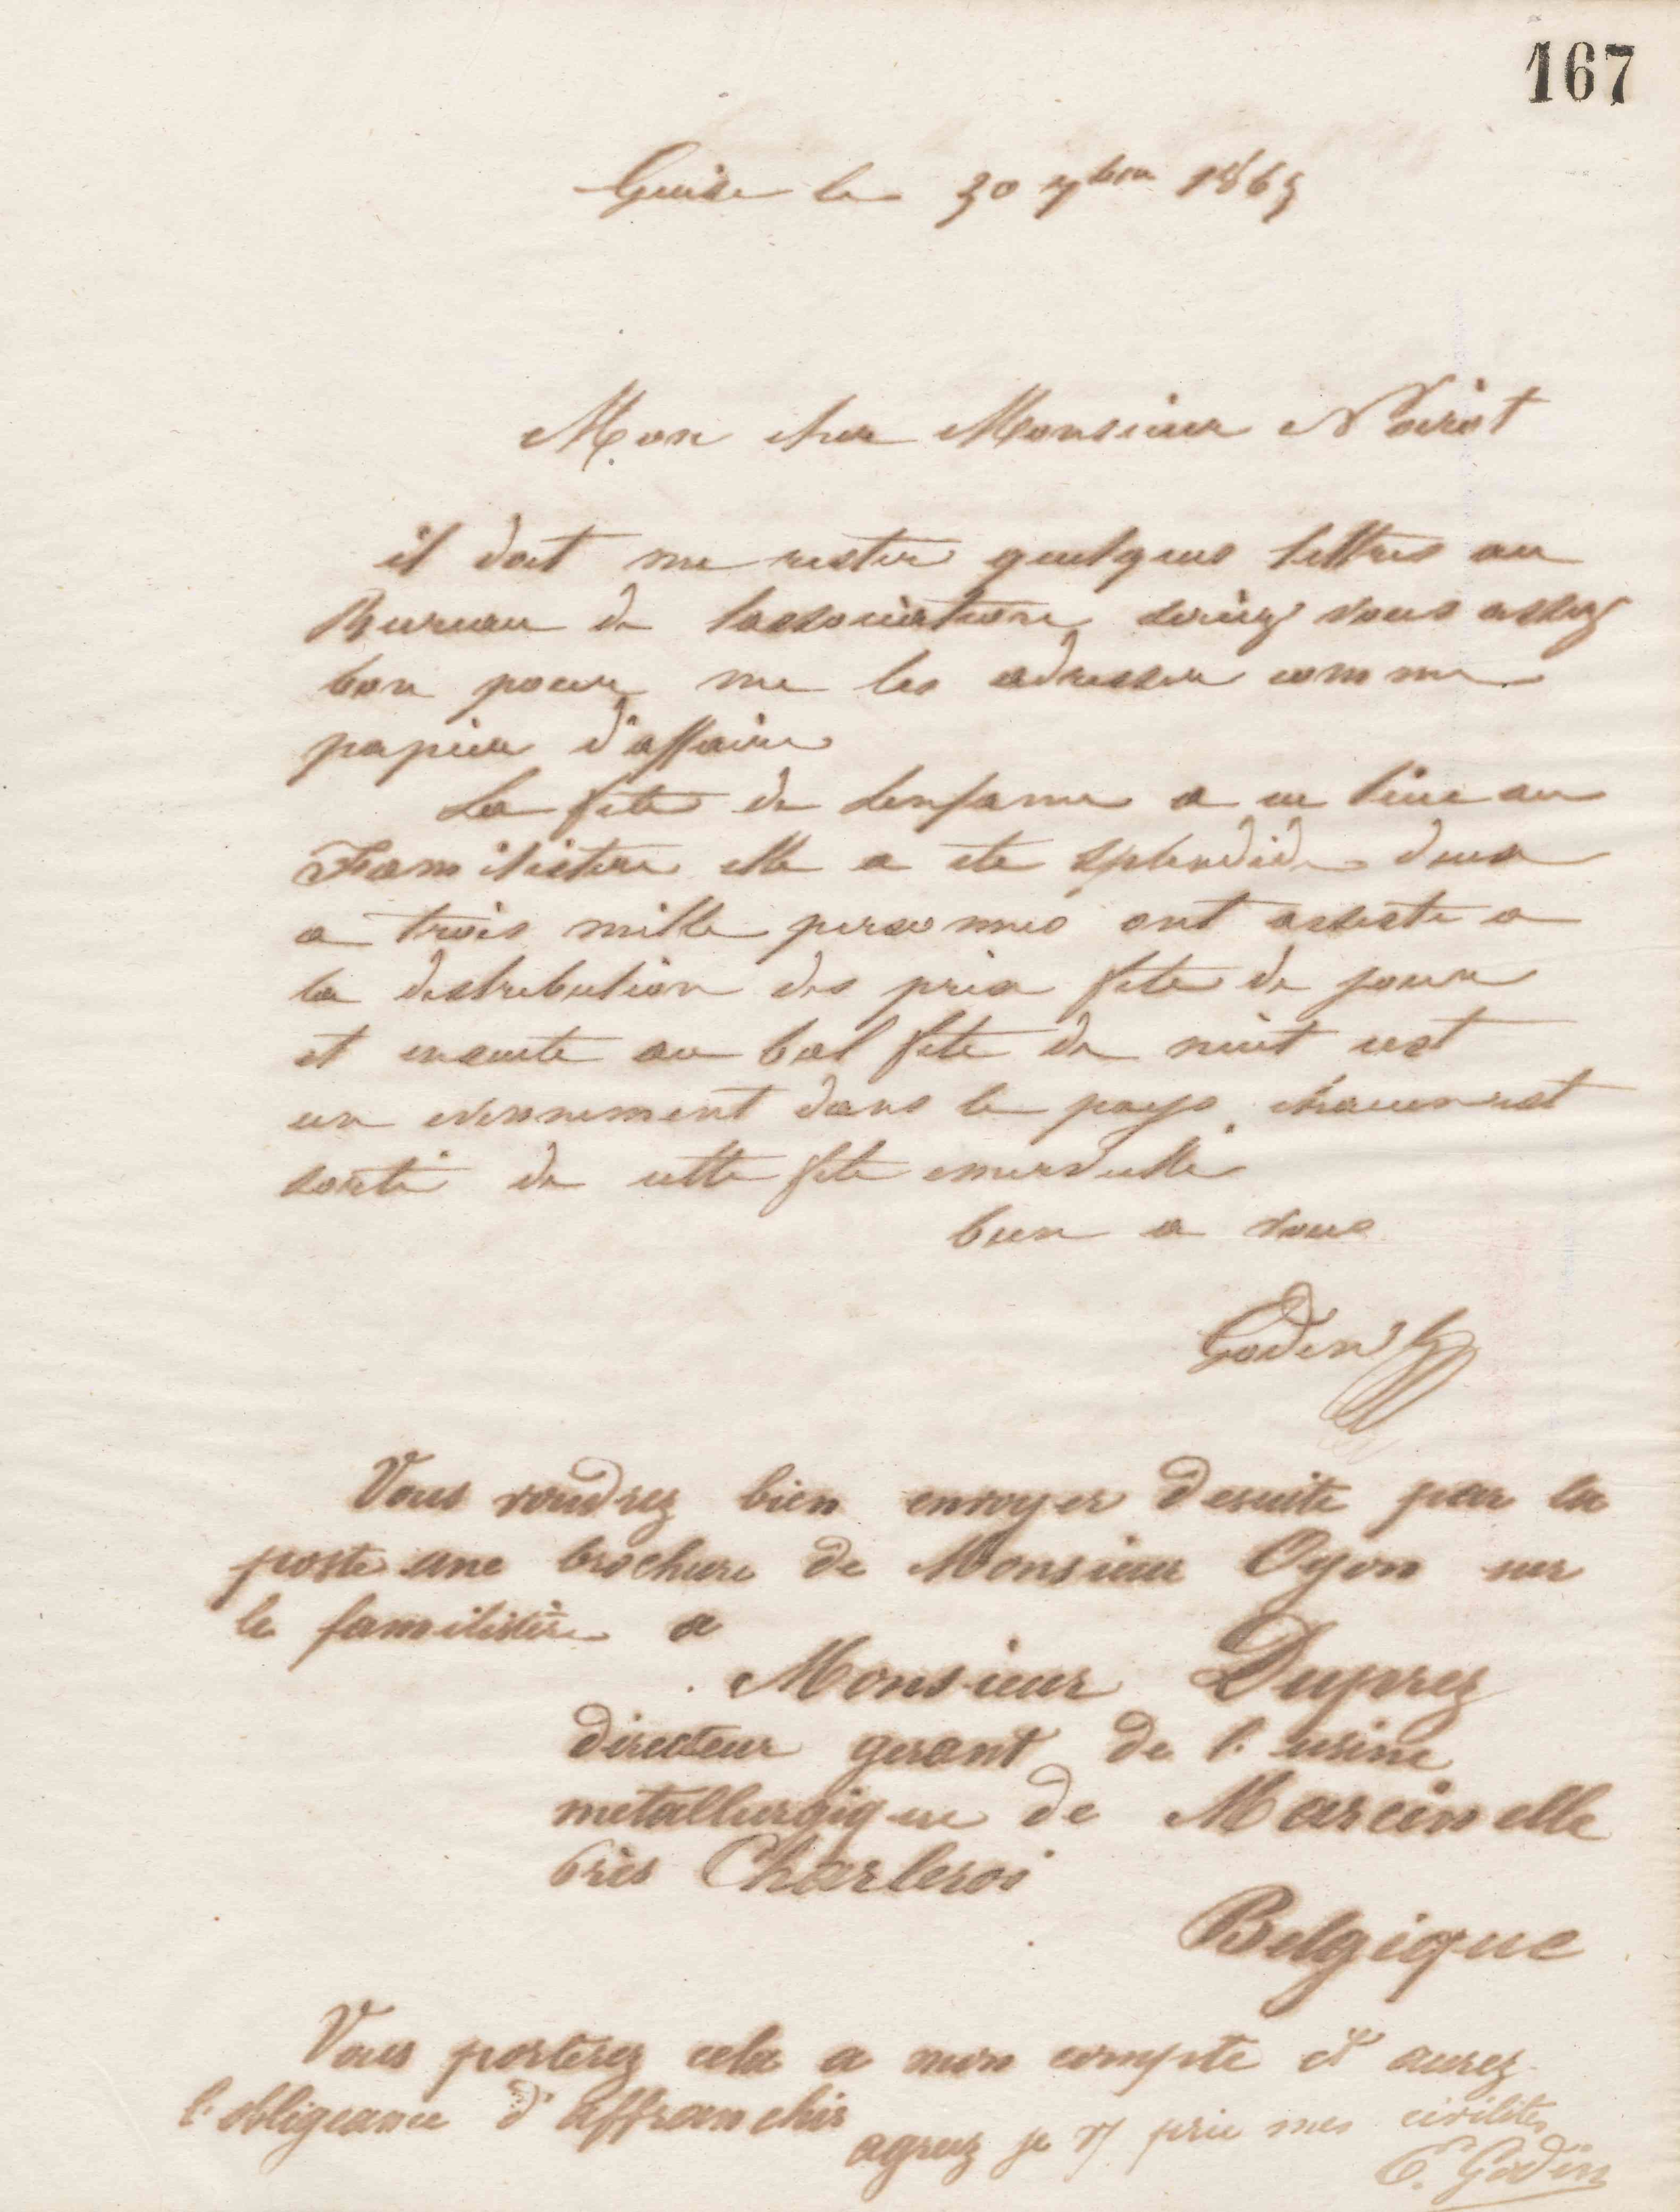 167
Guise le 30 7bre 1865
Mon cher Monsieur Noirot
il doit me rester quelques lettres au
Bureau de lassociation seriez vous assez
bon pour me les adresser comme
papier d'affaire
La fete de Lenfance a eu lieu au
Familistere elle a ete splendide deux
a trois mille personnes ont assiste a
la distribution des prix fete de jour
et ensuite au bal fete de nuit cest
un evennement dans le pays chacun est
sorti de cette fete emerveillé
bien a vous
Godin
Vous voudrez bien envoyer desuite par la
poste une brochure de Monsieur Oyon sur
le familistère a
Monsieur Duprez
directeur gerant de l'usine
metallurgique de Marcinelle
près Charleroi
Belgique
Vous porterez cela a mon compte et aurez
l'obligeance d'affranchir
agreez je v/ prie mes civilités
E. Godin